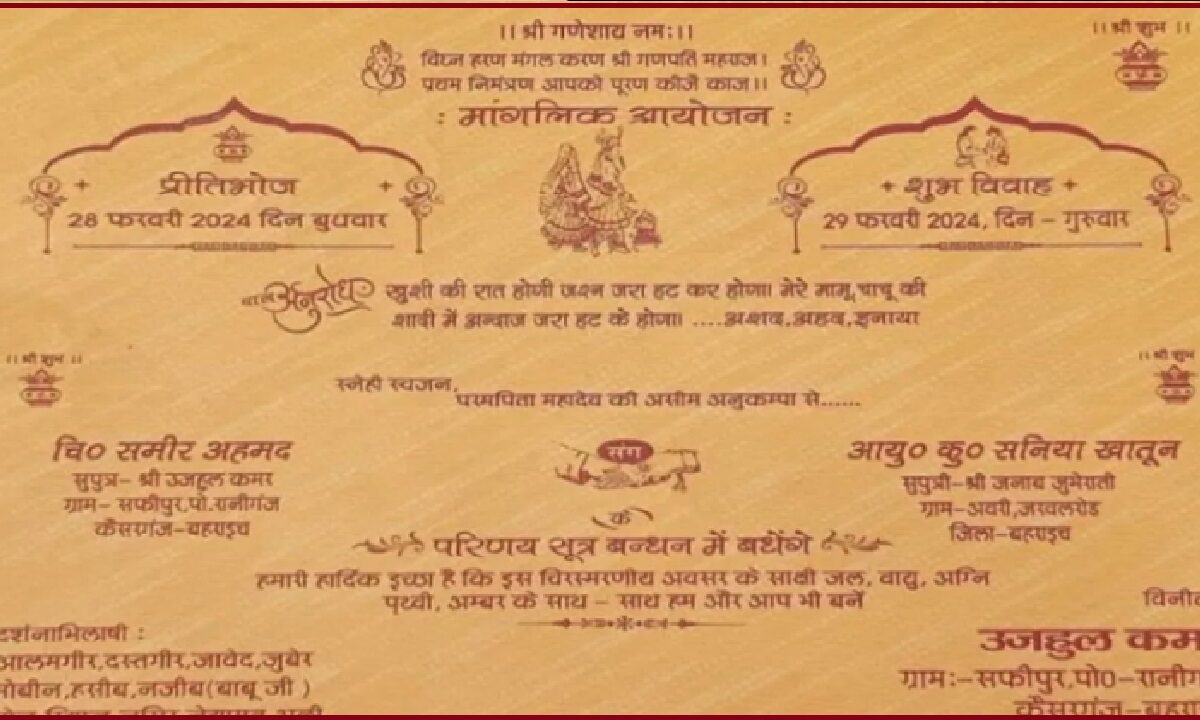 ।। श्री गणेशाय नमः।।
।। श्री शुभ ।।
विघ्न हरण मंगल करण श्री गणपति महराज।
प्रथम निमंत्रण आपको पूरण कीजै काज।।
: मांगलिक आयोजन :
प्रीतिभोज
28 फरवरी 2024 दिन बुधवार
शुभ विवाह
29 फरवरी 2024, दिन – गुरुवार
बाल अनुरोध
खुशी की रात होगी जश्न जरा हट कर होगा। मेरे मामू,चाचू की
शादी में अन्दाज जरा हट के होगा। ....अशद,अहद,इनाया
।। श्री शुभ ।।
।। श्री शुभ
स्नेही स्वजन,
परमपिता महादेव की असीम अनुकम्पा से......
चि० समीर अहमद
सुपुत्र- श्री उजहुल कमर
ग्राम- सफीपुर,पो.रानीगंज
कैसरगंज-बहराइच
संग
आयु० कु० सनिया खातून
सुपुत्री-श्री जनाब जुमेराती
ग्राम-अवरी,जरवलरोड
जिला-बहराइच
के
परिणय सूत्र बन्धन में बधेंगे
हमारी हार्दिक इच्छा है कि इस चिरस्मरणीय अवसर के साक्षी जल, वायु, अग्नि
पृथ्वी, अम्बर के साथ – साथ हम और आप भी बनें
दर्शनाभिलाषी :
आलमगीर,दस्तगीर,जावेद,जुबेर
मोबीन,हसीब,नजीब(बाबू जी )
विनीत
उजहुल कम
ग्राम:-सफीपुर,पो०-रानीग
कैसरगंज-बहरा